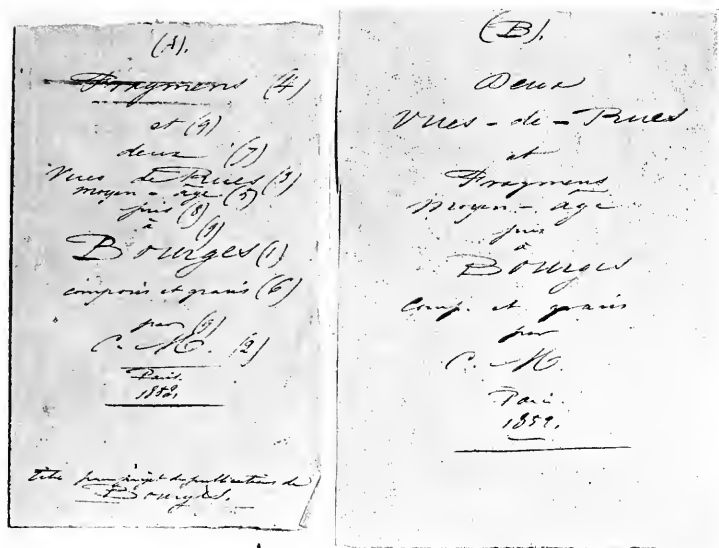 (A).
Fragmens (4)
et (9)
deux (7)
Vues de Rues (3)
moyen-âge (5)
pris (8)
à (9)
Bourges (1)
composés et gravés (6)
par (9)
C. M. (2)
Paris.
1852.
titre pour projet de publication de
Bourges.
(B).
Deux
Vues-de-Rues
et
Fragmens
Moyen-âge
pris
à
Bourges
comp. et gravés
par
C. M.
Paris.
1852.